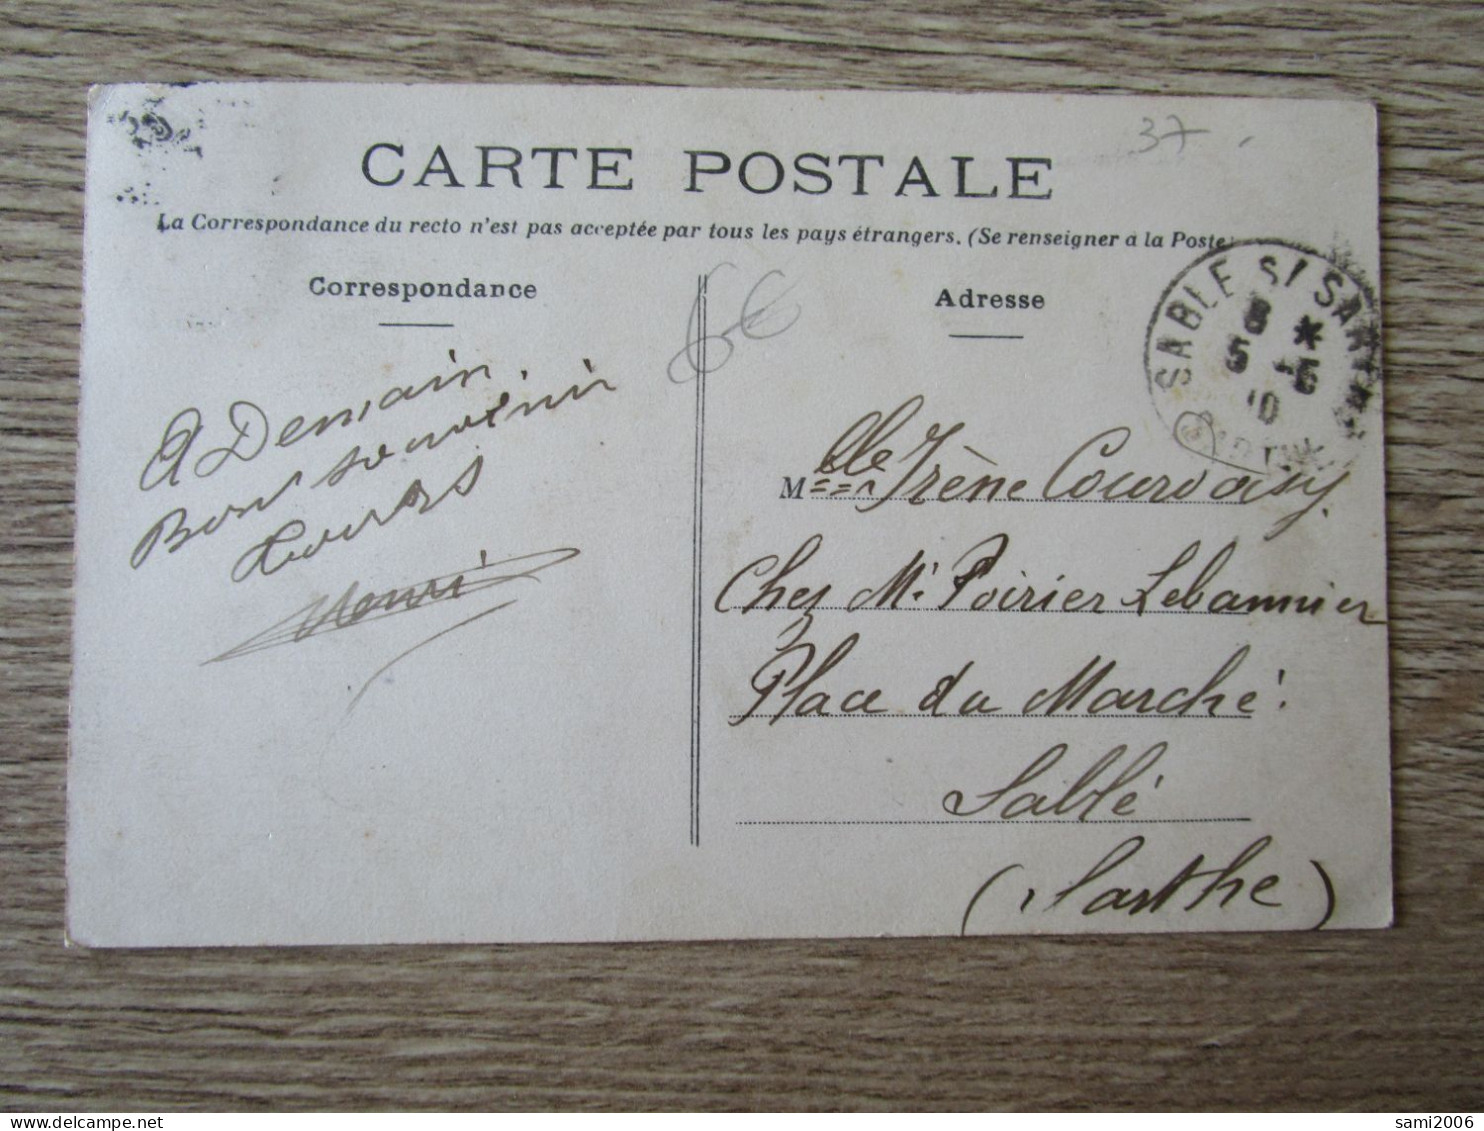 37
CARTE POSTALE
La Correspondance du recto n'est pas acceptée par tous les pays étrangers. (Se renseigner à la Poste)
Correspondance
6€
Adresse
SABLE S/ SARTHE
8 *
5 -5
10
SARTHE
A Demain
Bon souvenir
Henri
Mlle Irène Courvoisy
Chez Mr Poirier Lebannier
Place du Marché.
Sablé
(Sarthe)
sami2006